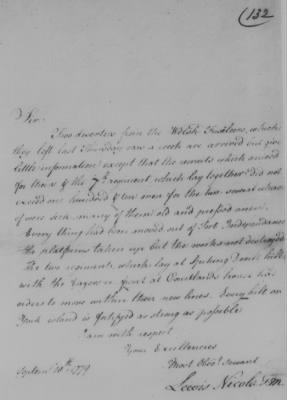 (132
Sir.
Two deserters from the Welsh Fuzileers, which
they left last Thursday was a week are arrived but give
little information except that the recruits which arrived
for them & the 7th regiment which lay together did not
exceed one hundred & ten men for the two several whereof
were sick many of them old and pressed men.
Every thing had been moved out of Fort Independance
the platforms taken up but the works not destroyed.
The two regiments which lay at Spiking Devils hill
with the Yagers in front at Courtlands house had
orders to move within their new lines. Every hill on
York island is fortifyed as strong as possible
I am with respect
Your Excellencies
Most Obedt. servant
Lewis Nicola
Septemr. 10th. 1779